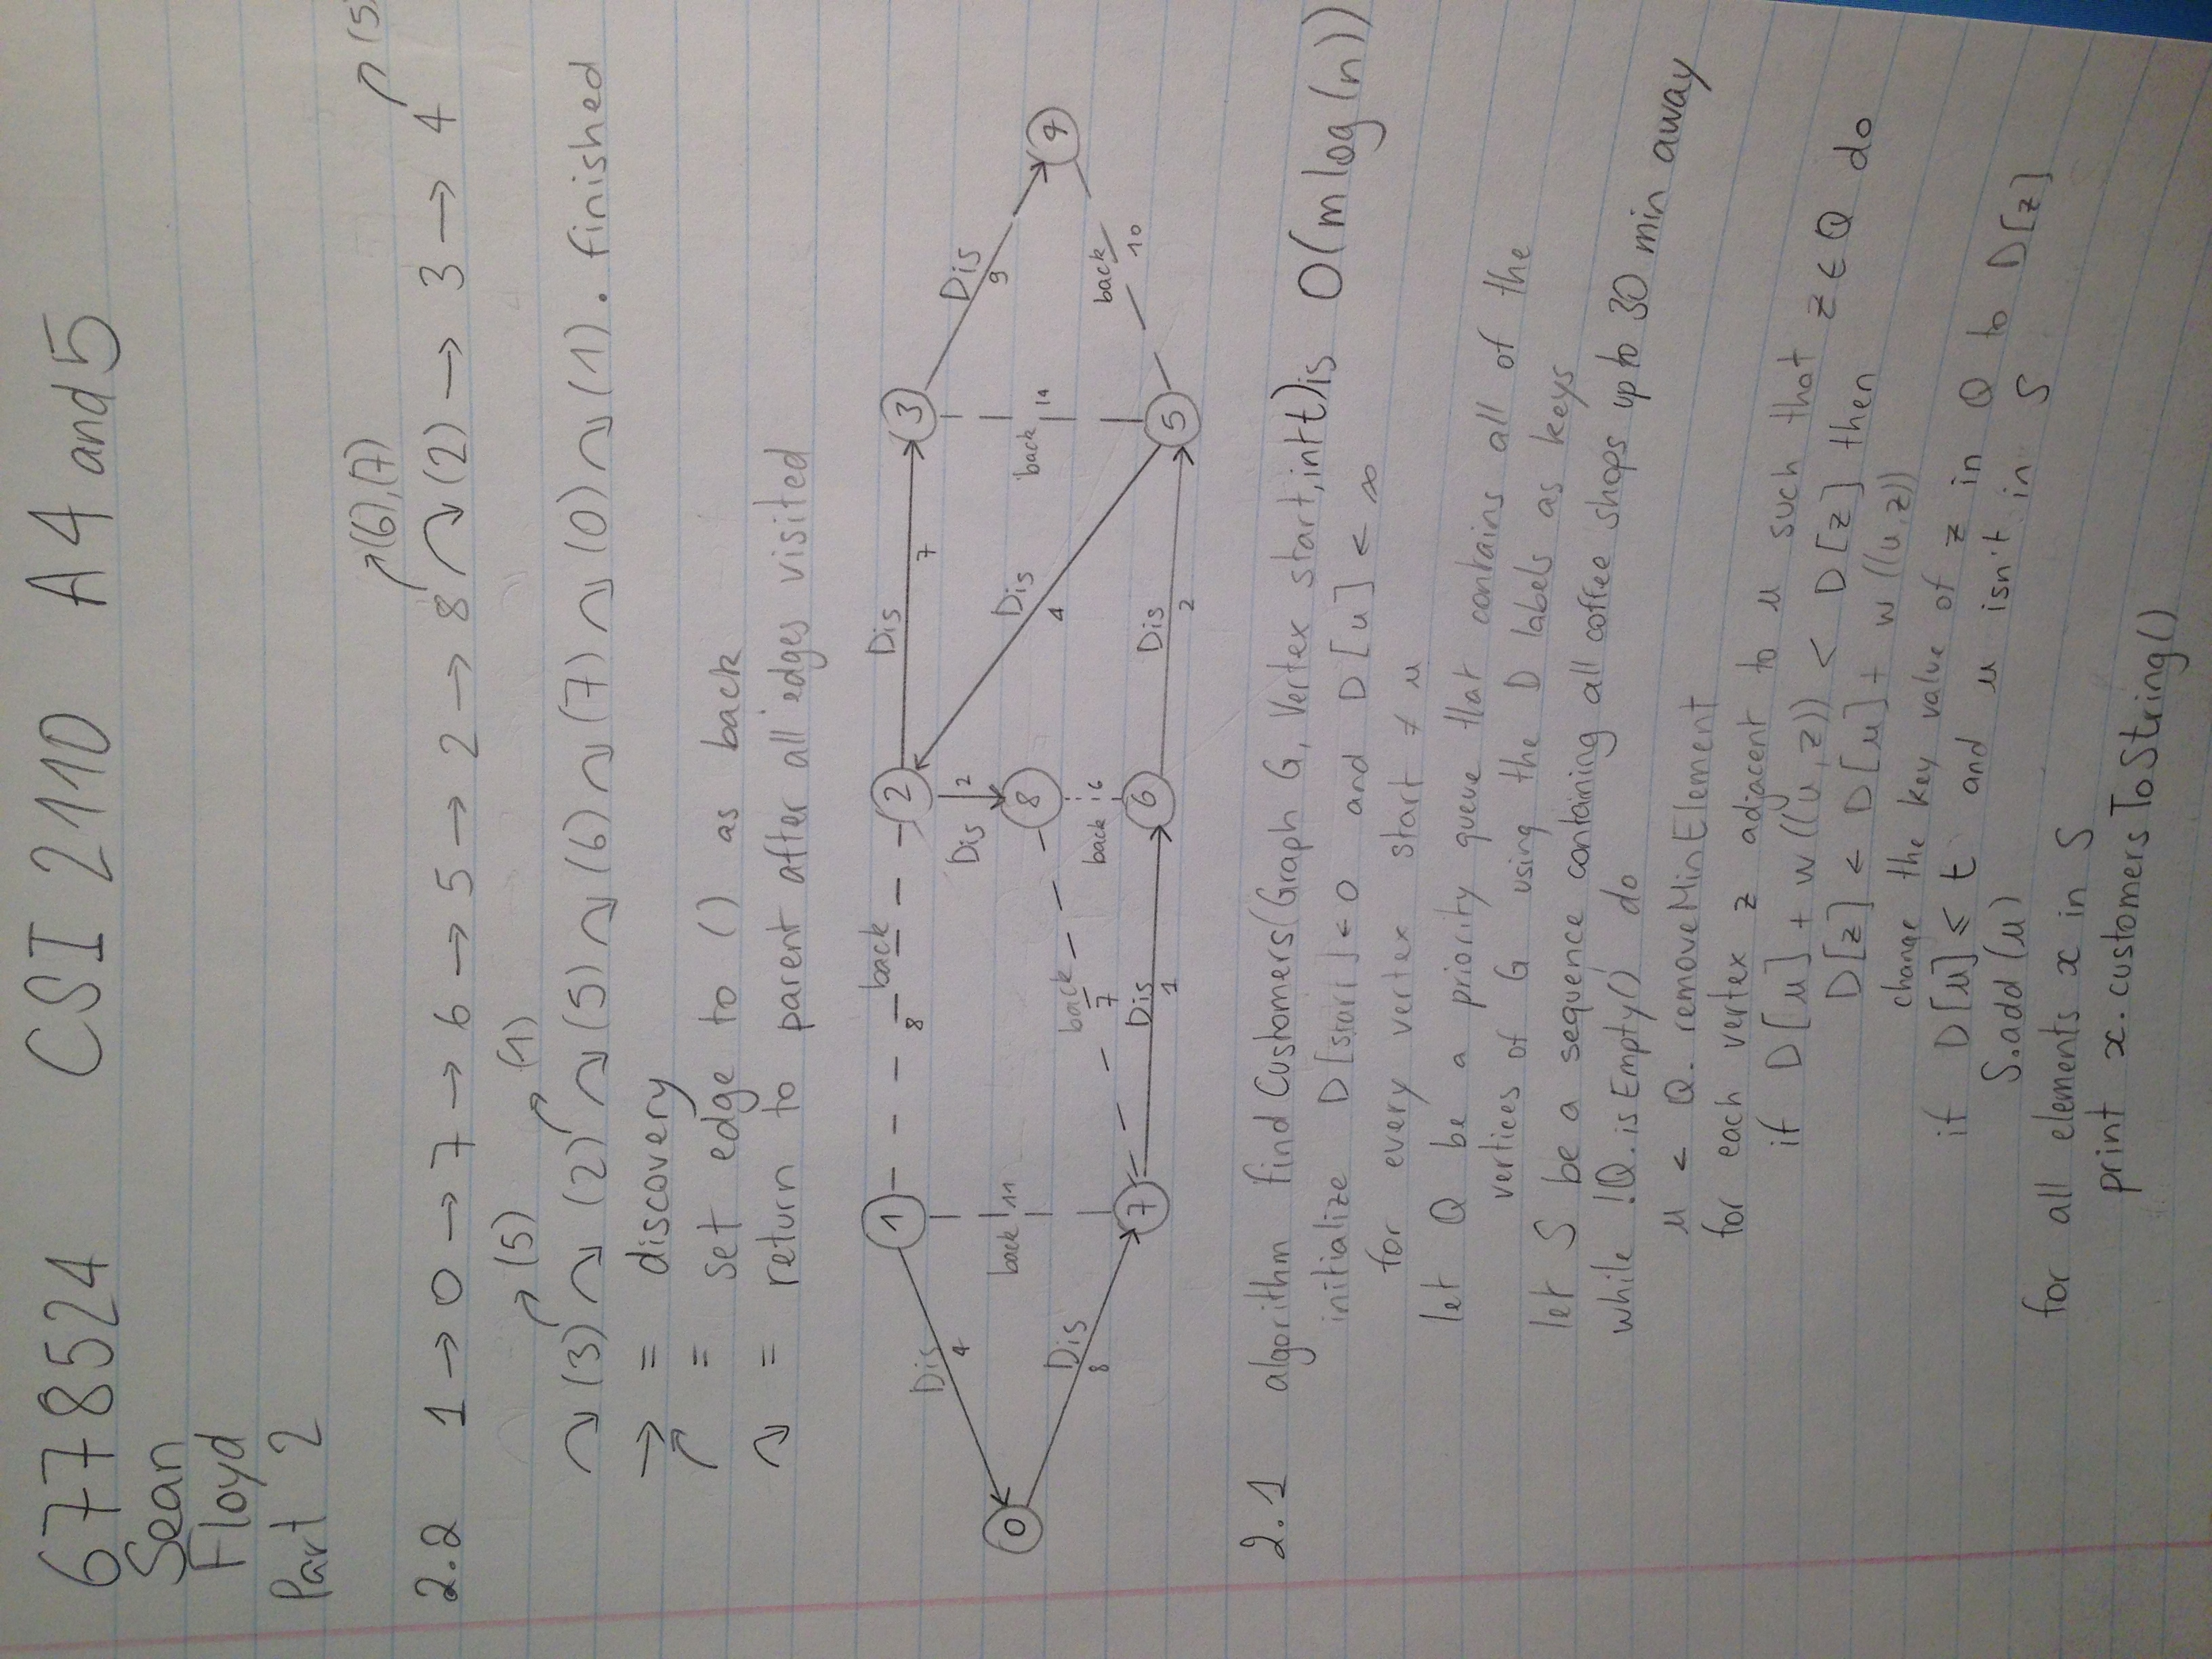 6778524 CSI 2110 A4 and 5
Sean
Floyd
Part 2
(6),(7) (5)
2.2 1 → 0 → 7 → 6 → 5 → 2 → 8 ↷ (2) → 3 → 4
(5) (1)
↷ (3) ↷ (2) ↷ (5) ↷ (6) ↷ (7) ↷ (0) ↷ (1). finished
→ = discovery
↱ = set edge to () as back
↷ = return to parent after all edges visited
1 back 8 2 Dis 7 3
Dis 4 Dis 2 Dis 9
0 back 11 8 Dis 4 back 14 4
Dis 8 back 7 back 6 back 10
7 Dis 1 6 Dis 2 5
2.1 algorithm findCustomers(Graph G, Vertex start, int t) is O(m log(n))
initialize D[start] ← 0 and D[u] ← ∞
for every vertex start ≠ u
let Q be a priority queue that contains all of the
vertices of G using the D labels as keys
let S be a sequence containing all coffee shops up to 30 min away
while !Q.isEmpty() do
u ← Q.removeMinElement
for each vertex z adjacent to u such that z ∈ Q do
if D[u] + w((u,z)) < D[z] then
D[z] ← D[u] + w((u,z))
change the key value of z in Q to D[z]
if D[u] ≤ t and u isn't in S
S.add(u)
for all elements x in S
print x.customersToString()